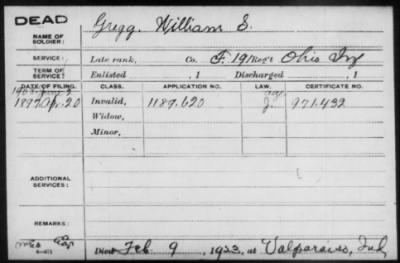 DEAD
NAME OF SOLDIER: Gregg, William S.
SERVICE: Late rank, Co. F. 191 Reg't Ohio Inf
TERM OF SERVICE: Enlisted , 1 Discharged , 1
DATE OF FILING. CLASS. APPLICATION NO. LAW. CERTIFICATE NO.
1897 Apr. 20 Invalid, 1189.620 J. 971.432
Widow,
Minor,
ADDITIONAL SERVICES:
REMARKS:
Died Feb. 9, 1933, at Valparaiso, Ind